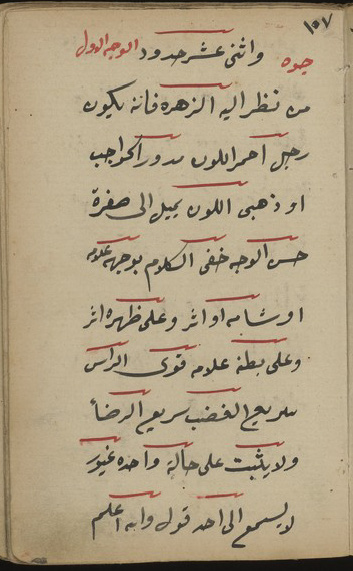 ١٥٧
وجوه واثنى عشر حدود الوجه الاول
من نظر اليه الزهره فانه يكون
رجل احمر اللون مدور الحواجب
او ذهبى اللون يميل الى صفرة
حسن الوجه خفى الكلام بوجهه علامه
او شامه او اثر وعلى ظهره اثر
وعلى بطنه علامه قوى الراس
سريع الغضب سريع الرضأ
ولا يثبت على حالة واحده غيور
لا يسمع الى احد قول والله اعلم